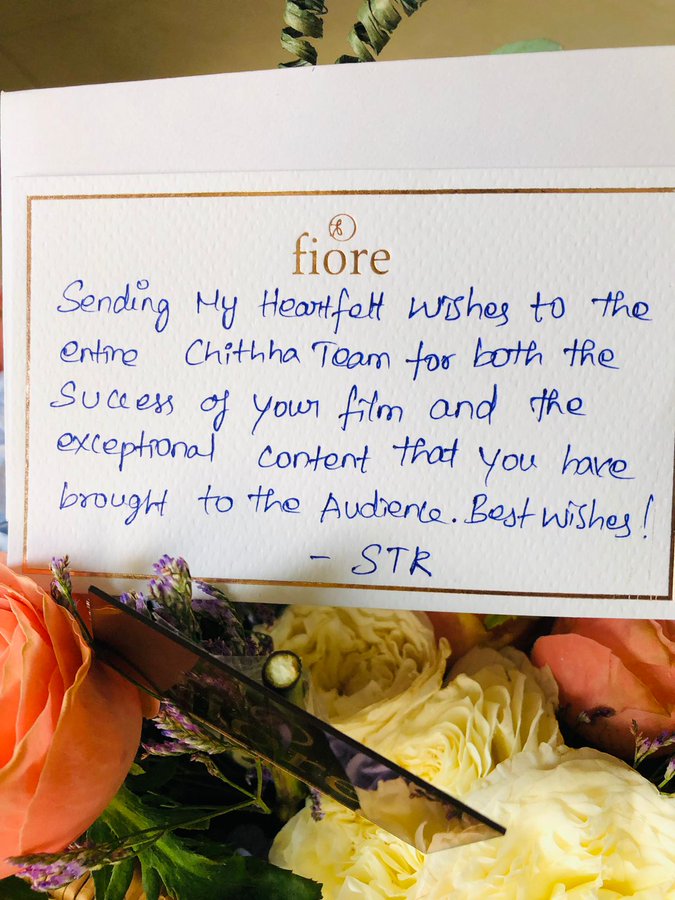 fiore
Sending My Heartfelt Wishes to the
entire Chithha Team for both the
Success of your film and the
exceptional content that you have
brought to the Audience. Best wishes!
- STR